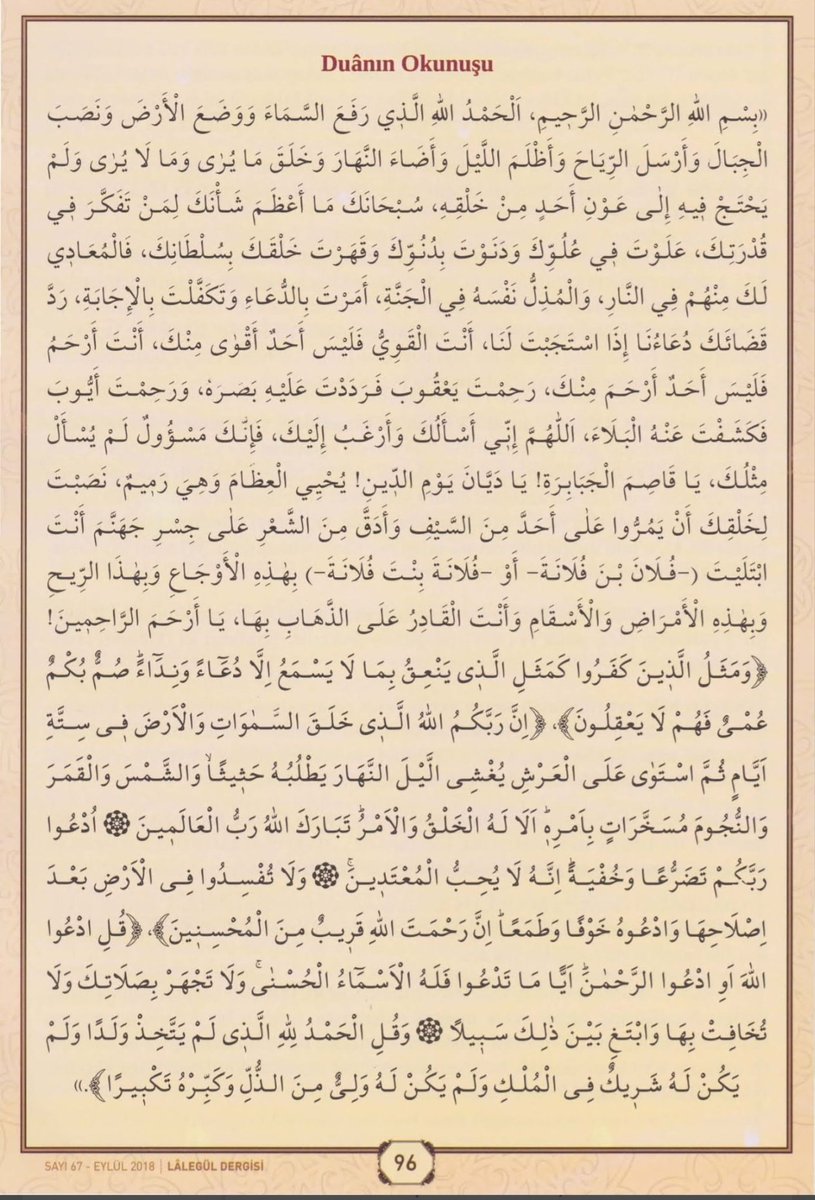 Duânın Okunuşu
«بِسْمِ اللهِ الرَّحْمٰنِ الرَّحِيمِ، اَلْحَمْدُ اللهِ الَّذِي رَفَعَ السَّمَاءَ وَوَضَعَ الْأَرْضَ وَنَصَبَ
الْجِبَالَ وَأَرْسَلَ الرِّيَاحَ وَأَظْلَمَ اللَّيْلَ وَأَضَاءَ النَّهَارَ وَخَلَقَ مَا يُرٰى وَمَا لَا يُرٰى وَلَمْ
يَحْتَجْ فِيهِ إِلٰى عَوْنِ أَحَدٍ مِنْ خَلْقِهِ، سُبْحَانَكَ مَا أَعْظَمَ شَأْنَكَ لِمَنْ تَفَكَّرَ فِي
قُدْرَتِكَ، عَلَوْتَ فِي عُلُوِّكَ وَدَنَوْتَ بِدُنُوِّكَ وَقَهَرْتَ خَلْقَكَ بِسُلْطَانِكَ، فَالْمُعَادِي
لَكَ مِنْهُمْ فِي النَّارِ، وَالْمُذِلُّ نَفْسَهُ فِي الْجَنَّةِ، أَمَرْتَ بِالدُّعَاءِ وَتَكَفَّلْتَ بِالْإِجَابَةِ، رَدَّ
قَضَائَكَ دُعَاءُنَا إِذَا اسْتَجَبْتَ لَنَا، أَنْتَ الْقَوِيُّ فَلَيْسَ أَحَدٌ أَقْوٰى مِنْكَ، أَنْتَ أَرْحَمُ
فَلَيْسَ أَحَدٌ أَرْحَمَ مِنْكَ، رَحِمْتَ يَعْقُوبَ فَرَدَدْتَ عَلَيْهِ بَصَرَهُ، وَرَحِمْتَ أَيُّوبَ
فَكَشَفْتَ عَنْهُ الْبَلَاءَ، اَللّٰهُمَّ إِنِّي أَسْأَلُكَ وَأَرْغَبُ إِلَيْكَ، فَإِنَّكَ مَسْؤُولٌ لَمْ يُسْأَلْ
مِثْلُكَ، يَا قَاصِمَ الْجَبَابِرَةِ! يَا دَيَّانَ يَوْمِ الدِّينِ! يُحْيِي الْعِظَامَ وَهِيَ رَمِيمٌ، نَصَبْتَ
لِخَلْقِكَ أَنْ يَمُرُّوا عَلٰى أَحَدَّ مِنَ السَّيْفِ وَأَدَقَّ مِنَ الشَّعْرِ عَلٰى جِسْرِ جَهَنَّمَ أَنْتَ
ابْتَلَيْتَ (-فُلَانَ بْنَ فُلَانَةَ- أَوْ -فُلَانَةَ بِنْتَ فُلَانَةَ-) بِهٰذِهِ الْأَوْجَاعِ وَبِهٰذَا الرِّيحِ
وَبِهٰذِهِ الْأَمْرَاضِ وَالْأَسْقَامِ وَأَنْتَ الْقَادِرُ عَلَى الذَّهَابِ بِهَا، يَا أَرْحَمَ الرَّاحِمِينَ!
﴿وَمَثَلُ الَّذِينَ كَفَرُوا كَمَثَلِ الَّذِى يَنْعِقُ بِمَا لَا يَسْمَعُ اِلَّا دُعَٓاءً وَنِدَٓاءًۜ صُمٌّ بُكْمٌ
عُمْىٌ فَهُمْ لَا يَعْقِلُونَ﴾، ﴿اِنَّ رَبَّكُمُ اللهُ الَّذِى خَلَقَ السَّمٰوَاتِ وَالْاَرْضَ فِى سِتَّةِ
اَيَّامٍ ثُمَّ اسْتَوٰى عَلَى الْعَرْشِ يُغْشِى الَّيْلَ النَّهَارَ يَطْلُبُهُ حَثِيثًاۙ وَالشَّمْسَ وَالْقَمَرَ
وَالنُّجُومَ مُسَخَّرَاتٍ بِاَمْرِهِۜ اَلَا لَهُ الْخَلْقُ وَالْاَمْرُۜ تَبَارَكَ اللهُ رَبُّ الْعَالَمِينَ ۞ اُدْعُوا
رَبَّكُمْ تَضَرُّعًا وَخُفْيَةًۜ اِنَّهُ لَا يُحِبُّ الْمُعْتَدِينَۚ ۞ وَلَا تُفْسِدُوا فِى الْاَرْضِ بَعْدَ
اِصْلَاحِهَا وَادْعُوهُ خَوْفًا وَطَمَعًاۜ اِنَّ رَحْمَتَ اللهِ قَرِيبٌ مِنَ الْمُحْسِنِينَ﴾، ﴿قُلِ ادْعُوا
اللهَ اَوِ ادْعُوا الرَّحْمٰنَۜ اَيًّا مَا تَدْعُوا فَلَهُ الْاَسْمَٓاءُ الْحُسْنٰىۚ وَلَا تَجْهَرْ بِصَلَاتِكَ وَلَا
تُخَافِتْ بِهَا وَابْتَغِ بَيْنَ ذٰلِكَ سَبِيلًا ۞ وَقُلِ الْحَمْدُ لِلهِ الَّذِى لَمْ يَتَّخِذْ وَلَدًا وَلَمْ
يَكُنْ لَهُ شَرِيكٌ فِى الْمُلْكِ وَلَمْ يَكُنْ لَهُ وَلِىٌّ مِنَ الذُّلِّ وَكَبِّرْهُ تَكْبِيرًا﴾.»
SAYI 67 - EYLÜL 2018 | LÂLEGÜL DERGİSİ
96